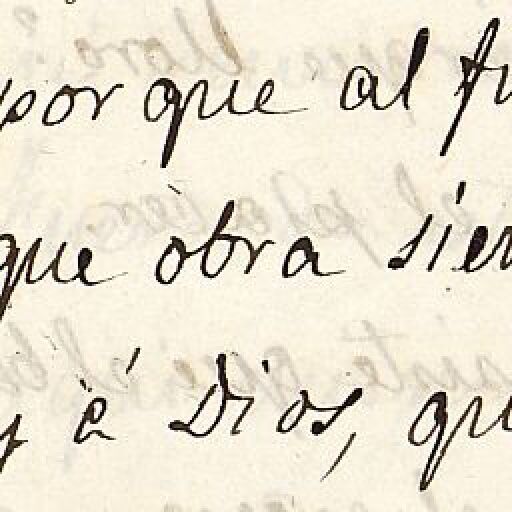 por que al fu
que òbra sien
y è Dios, qu